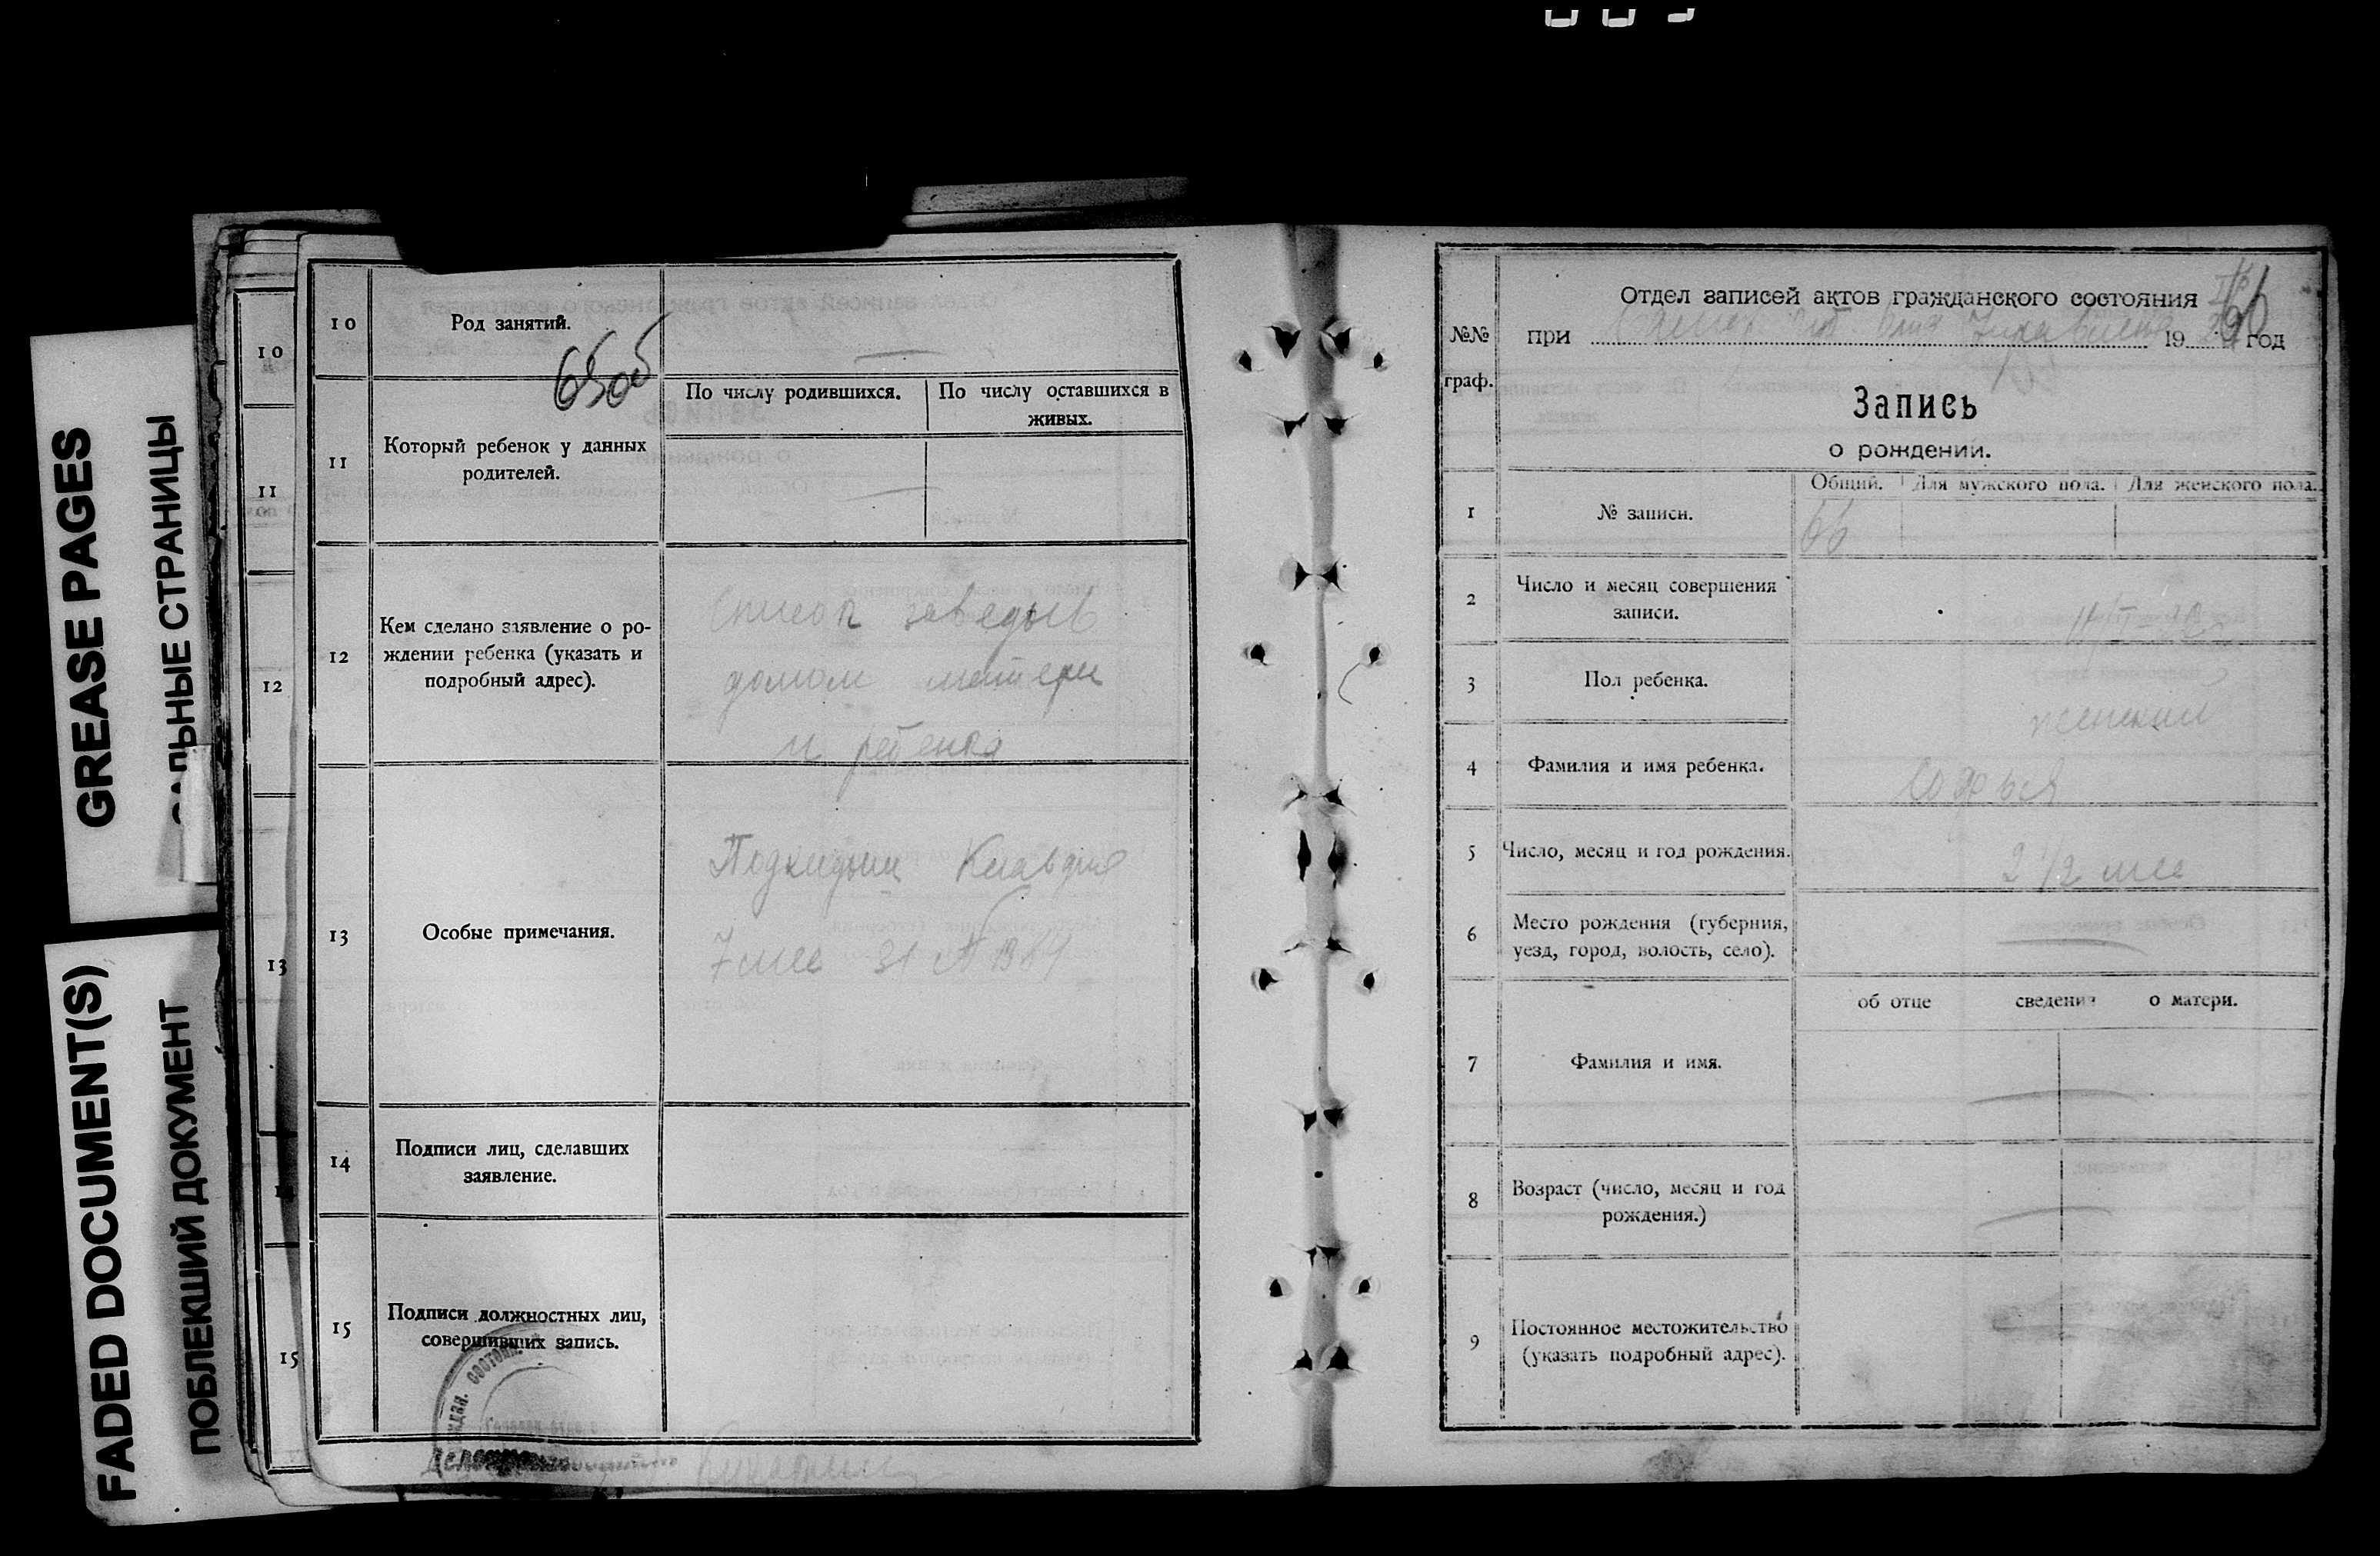 GREASE PAGES
САЛЬНЫЕ СТРАНИЦЫ
FADED DOCUMENT(S)
ПОБЛЕКШИЙ ДОКУМЕНТ
10
11
12
13
15
10
Род занятий.
65об
11
Который ребенок у данных
родителей.
По числу родившихся.
По числу оставшихся в
живых.
12
Кем сделано заявление о ро-
ждении ребенка (указать и
подробный адрес).
Список заведыв
домом матери
и ребенка
13
Особые примечания.
Подкидыш Клавдия
14
Подписи лиц, сделавших
заявление.
15
Подписи должностных лиц,
совершивших запись.
№№
граф.
Отдел записей актов гражданского состояния
при 19 год
66
Запись
о рождении.
1
№ записи.
Общий.
Для мужского пола.
Для женского пола.
66
2
Число и месяц совершения
записи.
3
Пол ребенка.
женский
4
Фамилия и имя ребенка.
Софья
5
Число, месяц и год рождения.
2 1/2 мес
6
Место рождения (губерния,
уезд, город, волость, село).
7
Фамилия и имя.
об отце
сведения
о матери.
8
Возраст (число, месяц и год
рождения.)
9
Постоянное местожительство
(указать подробный адрес).